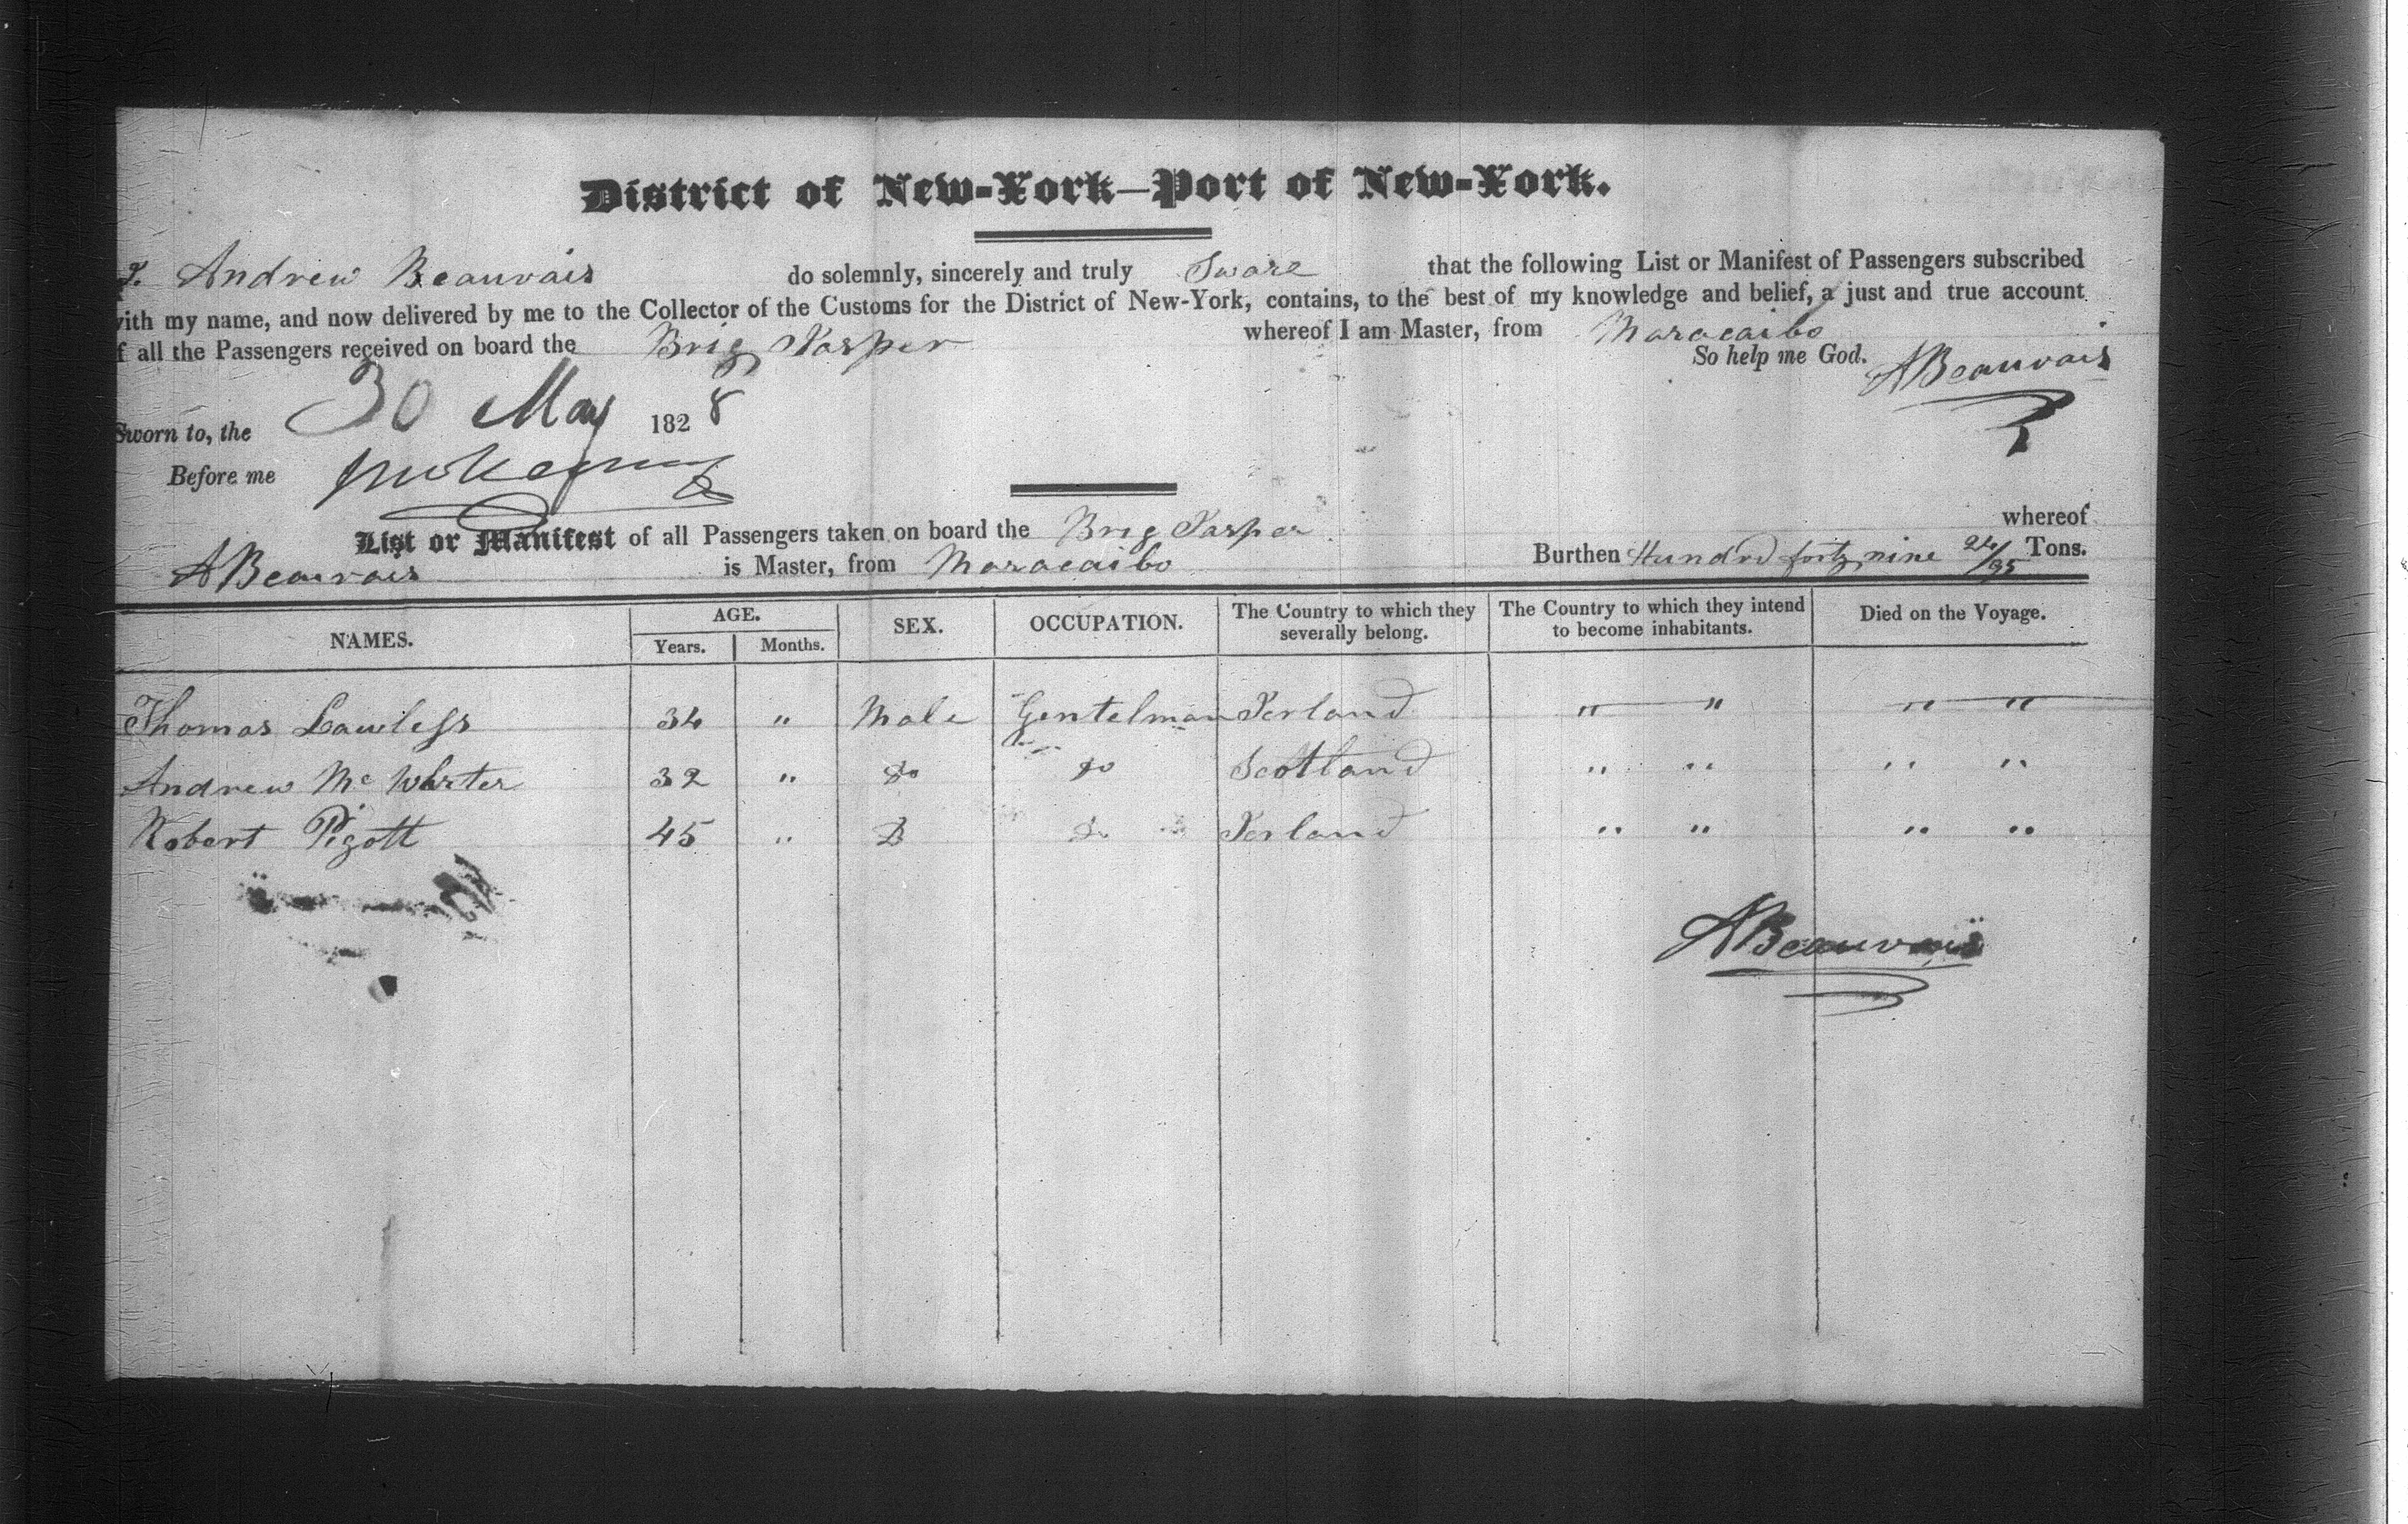 District of New-York—Port of New-York.
I. Andrew Beauvais do solemnly, sincerely and truly Sware that the following List or Manifest of Passengers subscribed
with my name, and now delivered by me to the Collector of the Customs for the District of New-York, contains, to the best of my knowledge and belief, a just and true account
f all the Passengers received on board the Brig Jasper whereof I am Master, from Maracaibo
So help me God. ABeauvais
Sworn to, the 30 May 1828
Before me
List or Manifest of all Passengers taken on board the Brig Jasper whereof
ABeauvais is Master, from Maracaibo Burthen Hundrd forty nine 24/95 Tons.
NAMES. AGE. Years. Months. SEX. OCCUPATION. The Country to which they severally belong. The Country to which they intend to become inhabitants. Died on the Voyage.
Thomas Lawless 34 " Male Gentelman Ierland " " " "
Andrew Mc Whrter 32 " Do Do Scotland " " " "
Robert Pigott 45 " Do Do Ierland " " " "
ABeauvais